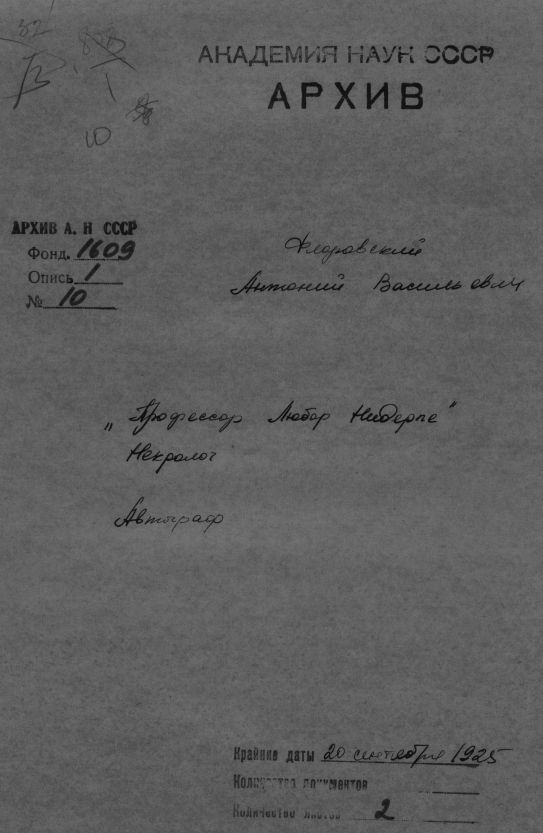 32
В.
1
10
АКАДЕМИЯ НАУК СССР
АРХИВ
АРХИВ А. Н СССР
Фонд. 1609
Опись 1
№ 10
Флоровский
Антоний Васильевич
„Профессор Любор Нидерле"
Некролог
Автограф
Крайние даты 20 сентября 1925
Количество документов
Количество листов 2